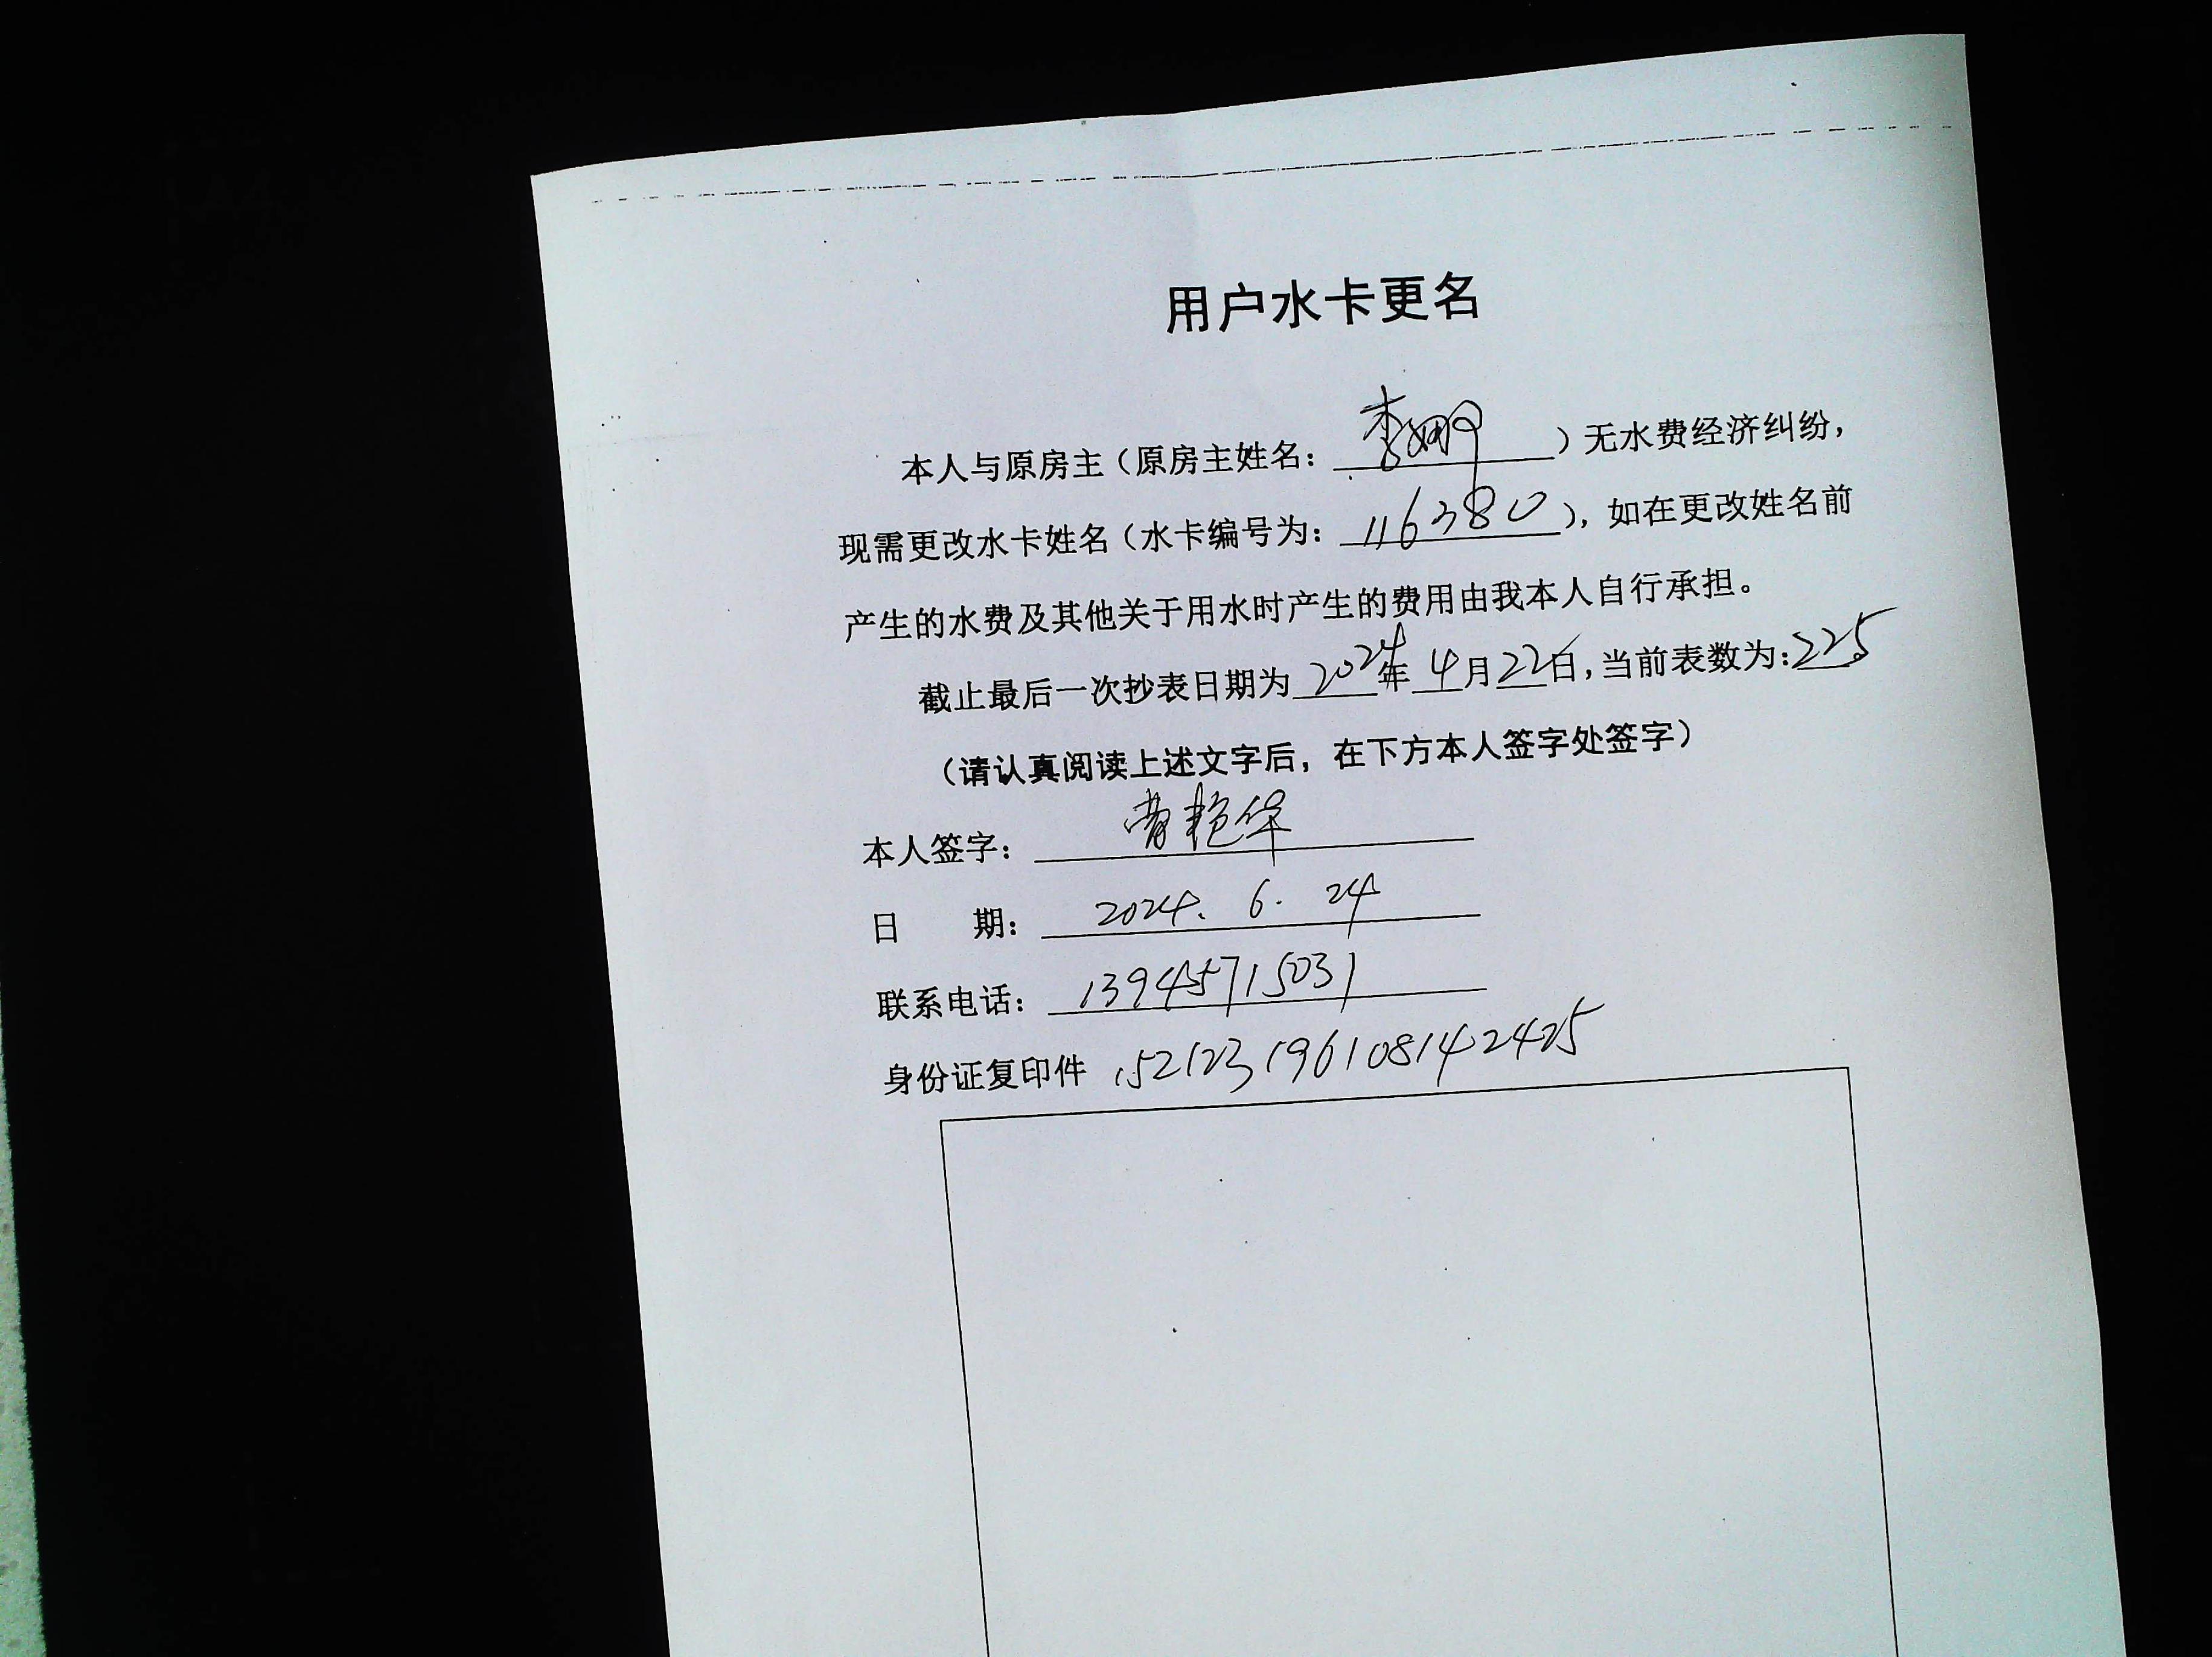 用户水卡更名
本人与原房主（原房主姓名：李娜）无水费经济纠纷，
现需更改水卡姓名（水卡编号为：116380），如在更改姓名前
产生的水费及其他关于用水时产生的费用由我本人自行承担。
截止最后一次抄表日期为2024年4月22日，当前表数为：225
（请认真阅读上述文字后，在下方本人签字处签字）
本人签字：曹艳华
日 期：2024.6.24
联系电话：13945715031
身份证复印件 152123196108142425